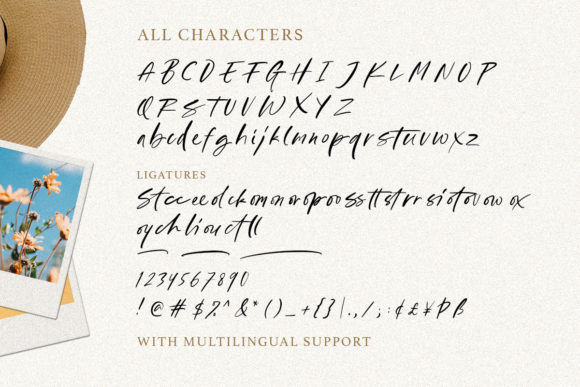 ALL CHARACTERS
A B C D E F G H I J K L M N O P
Q R S T U V W X Y Z
abcdefghijklmnopqrstuvwxz
LIGATURES
St cc ee ed ck om on or op oo ss tt st rr si ot ov ow ox
oy ch li ou ct ll
1234567890
! @ # $ % ^ & * ( ) _ + { } | . , / ; : ¢ £ ¥ Þ ß
WITH MULTILINGUAL SUPPORT